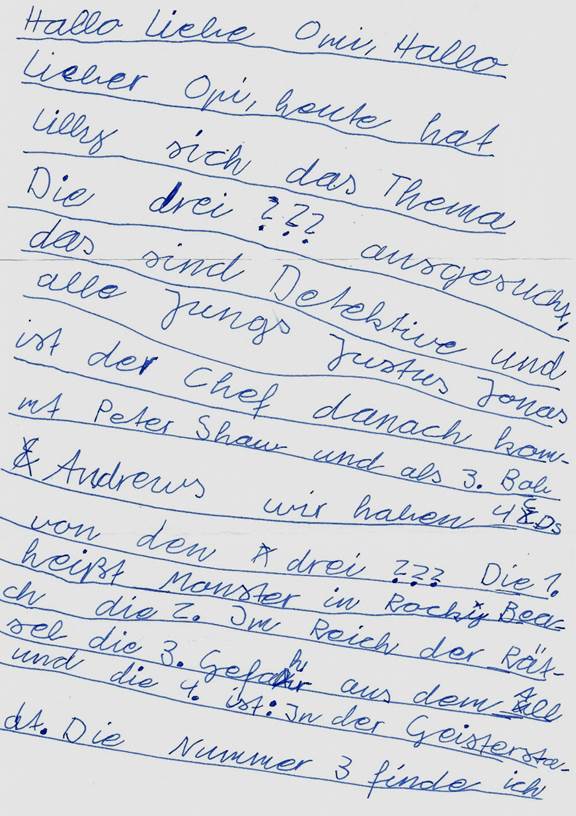 Hallo Liebe Omi, Hallo
Lieber Opi, heute hat
Lilly sich das Thema
Die drei ??? ausgesucht,
das sind Detektive und
alle Jungs Justus Jonas
ist der Chef danach kom-
mt Peter Shaw und als 3. Bob
Andrews wir haben 4 CDs
von den drei ??? Die 1.
heißt Monster in Rocky Bea-
ch die 2. Im Reich der Rät-
sel die 3. Gefahr aus dem All
und die 4. ist: In der Geistersta-
dt. Die Nummer 3 finde ich